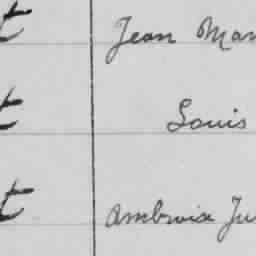 t Jean Mar
t Louis
t Ambroise Ju